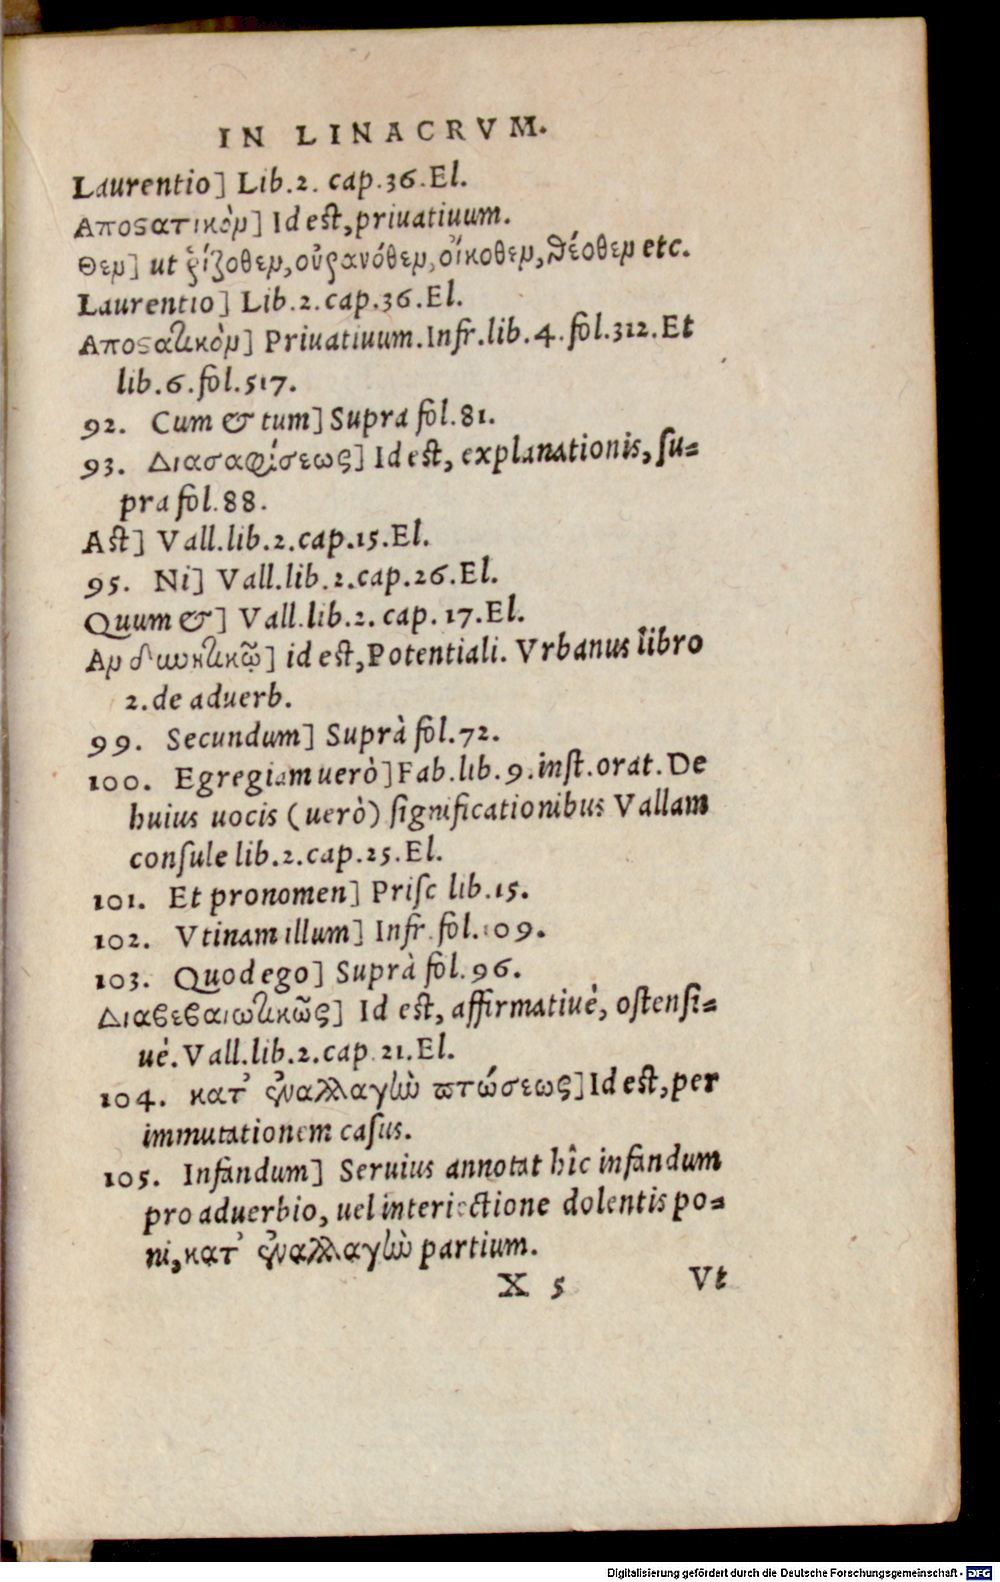 IN LINACRVM.
Laurentio] Lib.2. cap.36.El.
Αποϛατικὸν] Id est, priuatiuum.
Θεν] ut ῥίζοθεν, οὐρανόθεν, οἴκοθεν, θέοθεν etc.
Laurentio] Lib.2.cap.36.El.
Αποϛατικὸν] Priuatiuum.Infr.lib.4.fol.312.Et
lib.6.fol.517.
92. Cum & tum] Supra fol.81.
93. Διασαφίσεως] Id est, explanationis, ſu-
pra fol.88.
Ast] Vall.lib.2.cap.15.El.
95. Ni] Vall.lib.2.cap.26.El.
Quum &] Vall.lib.2.cap.17.El.
Αν δυνητικῷ] id est, Potentiali. Vrbanus libro
2.de aduerb.
99. Secundum] Suprà fol.72.
100. Egregiam uerò] Fab.lib.9.inſt.orat.De
huius uocis (uerò) ſignificationibus Vallam
conſule lib.2.cap.25.El.
101. Et pronomen] Priſc lib.15.
102. Vtinam illum] Infr.fol.109.
103. Quod ego] Suprà fol.96.
Διαβεβαιωτικῶς] Id est, affirmatiuè, oſtenſi-
uè.Vall.lib.2.cap.21.El.
104. κατ᾽ ἐναλλαγὴν πτώσεως] Id est, per
immutationem caſus.
105. Infandum] Seruius annotat hîc infandum
pro aduerbio, uel interiectione dolentis po-
ni, κατ᾽ ἐναλλαγὴν partium.
X 5 Vt
Digitalisierung gefördert durch die Deutsche Forschungsgemeinschaft - DFG